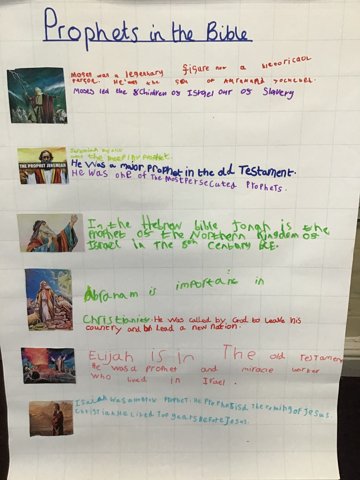 Prophets in the Bible
Moses was a legendary figure not a historical
person. He was the son of
Moses led the Children of Israel out of Slavery
THE PROPHET JEREMIAH
was the major prophet.
He was a major prophet in the old Testament.
He was one of The most persecuted Prophets.
In the Hebrew bible Jonah is the
Prophet of the Northern Kingdom of
Israel in the 8th Century BCE.
Abraham is important in
Christianity. He was called by God to leave his
country and lead a new nation.
Elijah is in The old Testament
He was a prophet and miracle worker
who lived in Israel.
Isaiah was a Hebrew Prophet. He the coming of Jesus.
Christian. He lived 700 years Before Jesus.